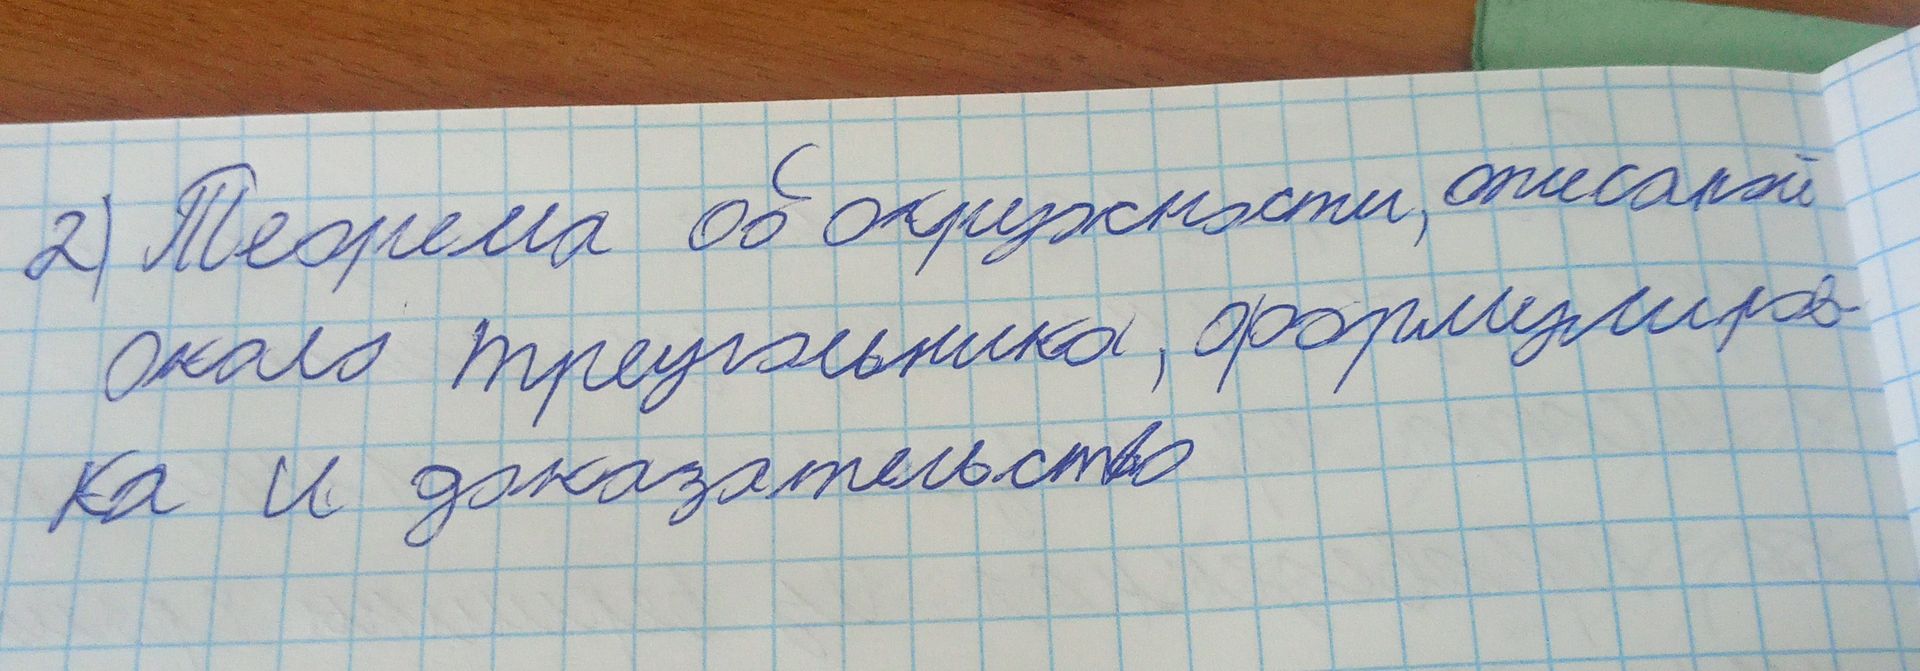 2) Теорема об окружности, описаной
около треугольника, формулиров-
ка и доказательство